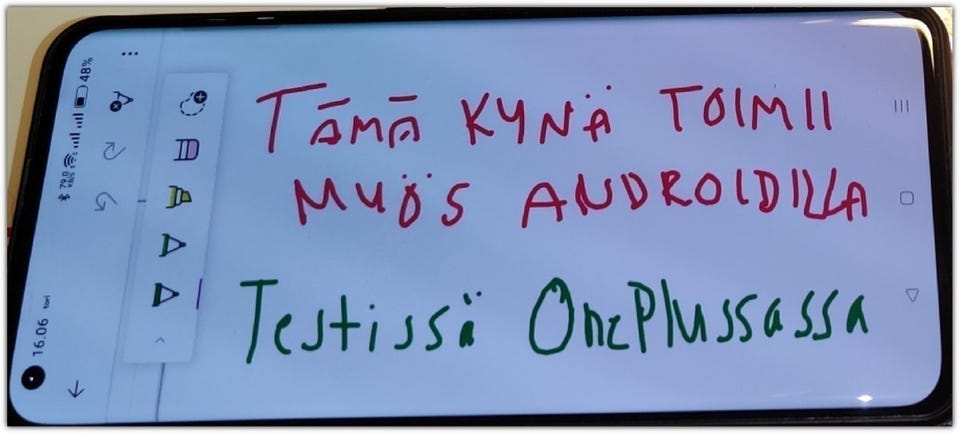 TÄMÄ KYNÄ TOIMII
MYÖS ANDROIDILLA
Testissä OnePlussassa
16.06 tori
79,0
KB/S
48%
A